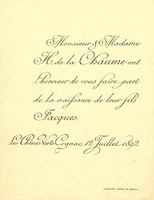 Monsieur & Madame
H. de la Chaume ont
l'honneur de vous faire part
de la naissance de leur fils
Jacques.
Cognac, 12 Juillet 1892